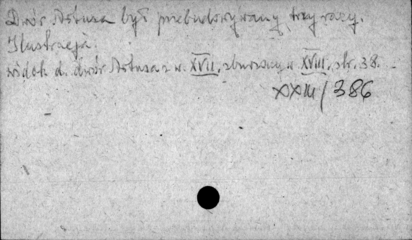 Dwór Artusa był przebudowywany trzy razy.
Ilustracja:
widok d. dwór Artusa z w. XVII, zburzony w XVIII, str. 38.
XXIII/386